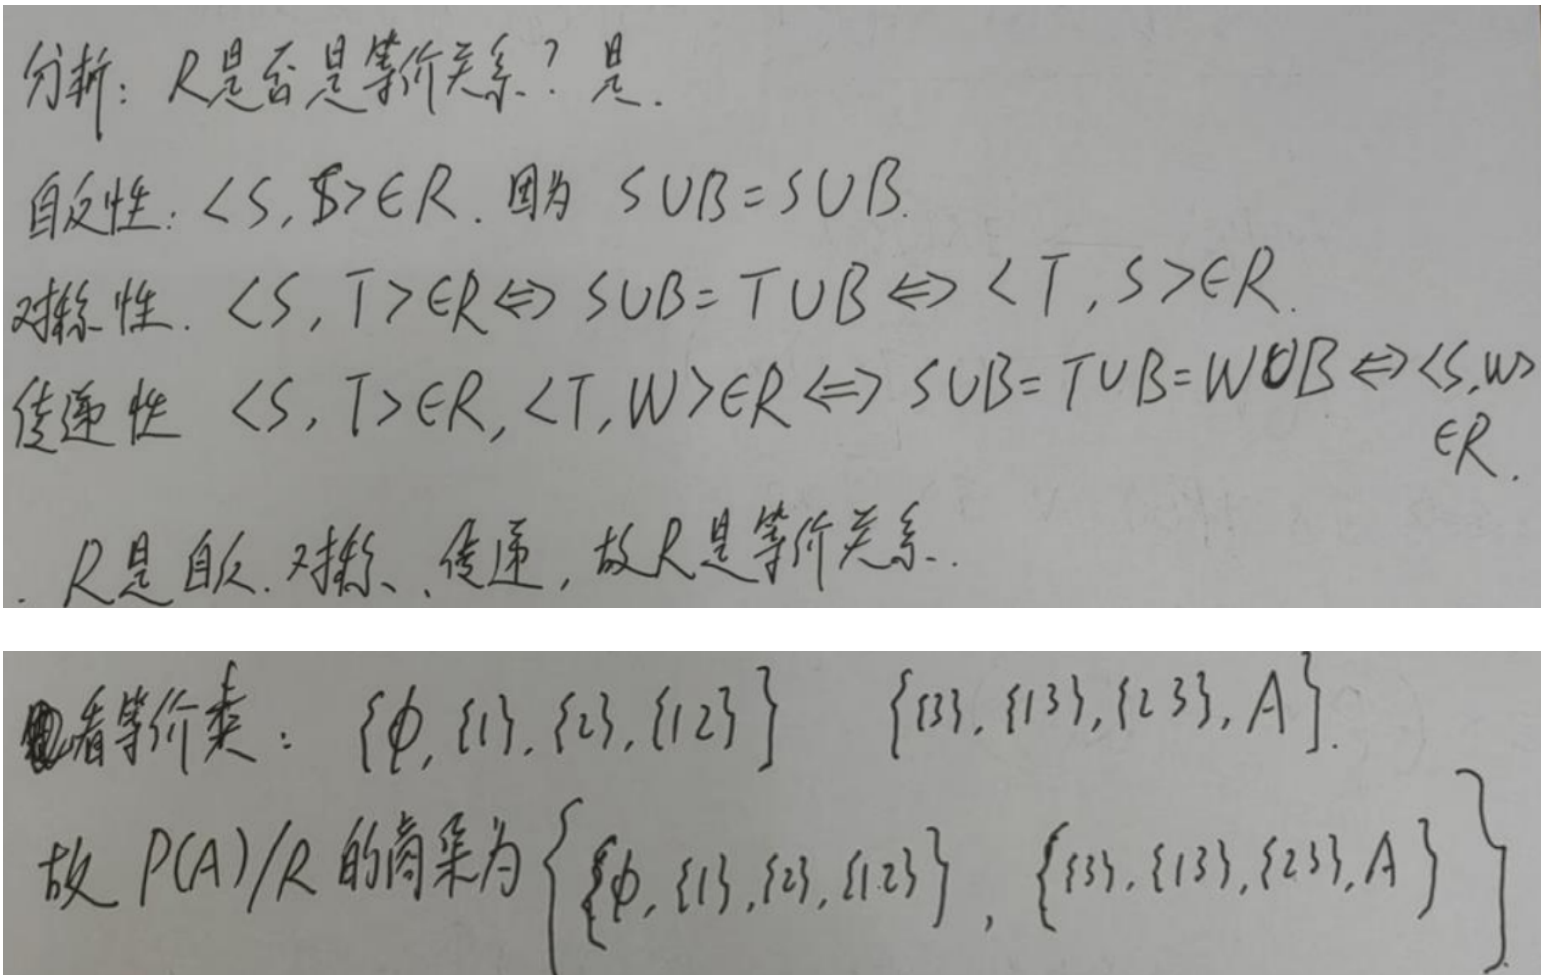 分析: R是否是等价关系? 是.
自反性: <S, S>∈R. 因为 S∪B=S∪B.
对称性. <S, T>∈R⇔ S∪B= T∪B ⇔ <T, S>∈R.
传递性 <S, T>∈R, <T, W>∈R ⇔ S∪B= T∪B=W∪B ⇔ <S,W>
∈R.
. R是自反. 对称、传递, 故R是等价关系.
看等价类: {φ, {1}, {2}, {12}} {{3}, {13}, {23}, A}.
故 P(A)/R 的商集为 {{φ, {1}, {2}, {12}}, {{3}, {13}, {23}, A}}